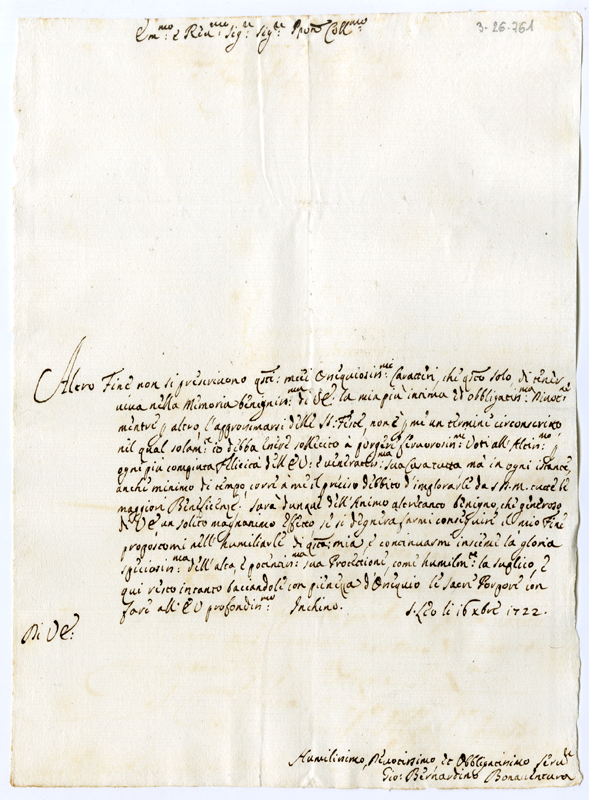 Em.mo e Rev.mo Sig.re Sig.re Pron Coll.mo
3-26-761
Altro Fine non si prescrivono qsti: miei Ossequiosis.mi Caratteri, che qsto solo, di tener
viva nella Memoria benignis.ma di VE. la mia più intima ed obbligatis.ma Divoc.ne
mentre p altro l'approssimarsi delle SS. Feste, non è p me un termine circonscritto
nel qual solam.te io debba essere sollecito à porgere fervorosis.mi Voti all'Altis.mo
ogni più compiuta Felicità dell'EV: e veneratis.ma sua Casa tutta mà in ogni istante,
anche minimo di tempo, corre à me il preciso debbito d'implorarle da S.D.M. tutte le
maggiori Beneficenze, sarà dunque dell'Animo altretanto benigno, che generoso
di VE un solito magnanimo effetto se si degnerà farmi conseguire il mio Fine
propostomi nell'humiliarle di qsta: mia, e continuarmi insieme la gloria
speciosis.ma dell'alta, e potentis.ma sua Protettione come humilm.te la supplico, e
qui resto intanto bacciandole con pienezza d'Ossequio le Sacre Porpore con
fare all'EV profondis.mo Inchino. S. Leo li 16 Xbre 1722.
Di VE:
Humilissimo, Divotissimo, et Obbligatissimo Serv.re
Gio: Bernardino Bonaventura